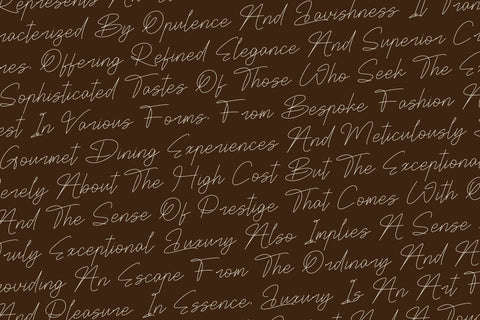 Represents An
racterised By Opulence And Lavishness It Tran
res Offering Refined Elegance And Superior Cr
Sophisticated Tastes Of Those Who Seek The E
est In Various Forms From Bespoke Fashion A
Gourmet Dining Experiences And Meticulously
erely About The High Cost But The Exceptional
And The Sense Of Prestige That Comes With O
Truly Exceptional Luxury Also Implies A Sense
roviding An Escape From The Ordinary And A
And Pleasure In Essence Luxury Is An Art F